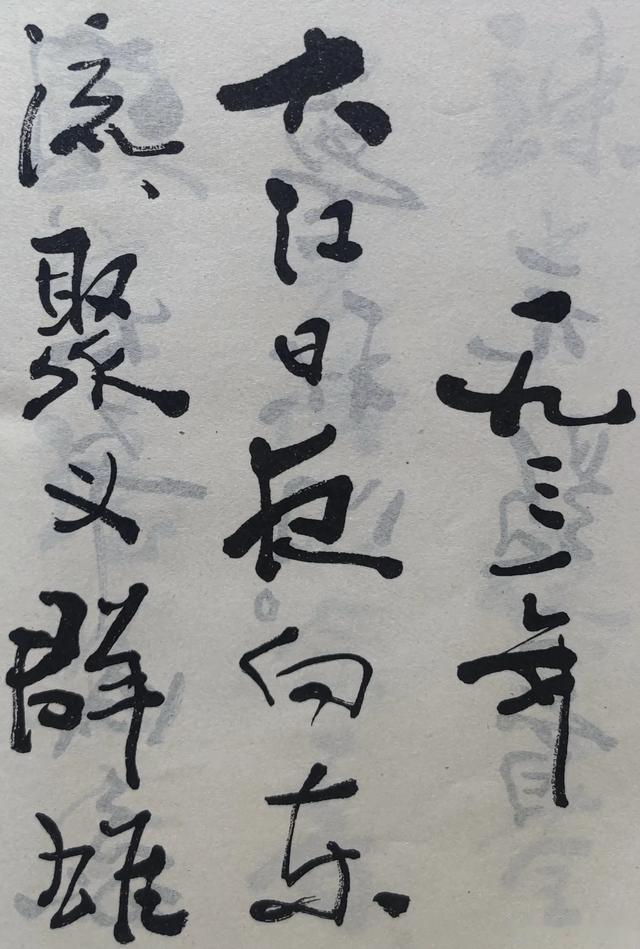 一九三二年
大江日夜向东
流、聚义群雄